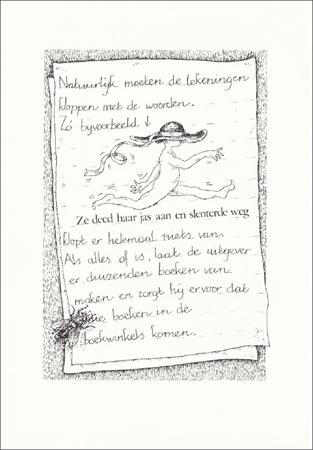 Natuurlijk moeten de tekeningen
kloppen met de woorden.
Zó bijvoorbeeld ↓
Ze deed haar jas aan en slenterde weg
klopt er helemaal niets van.
Als alles af is, laat de uitgever
er duizenden boeken van
maken en zorgt hij ervoor dat
die boeken in de
boekwinkels komen.